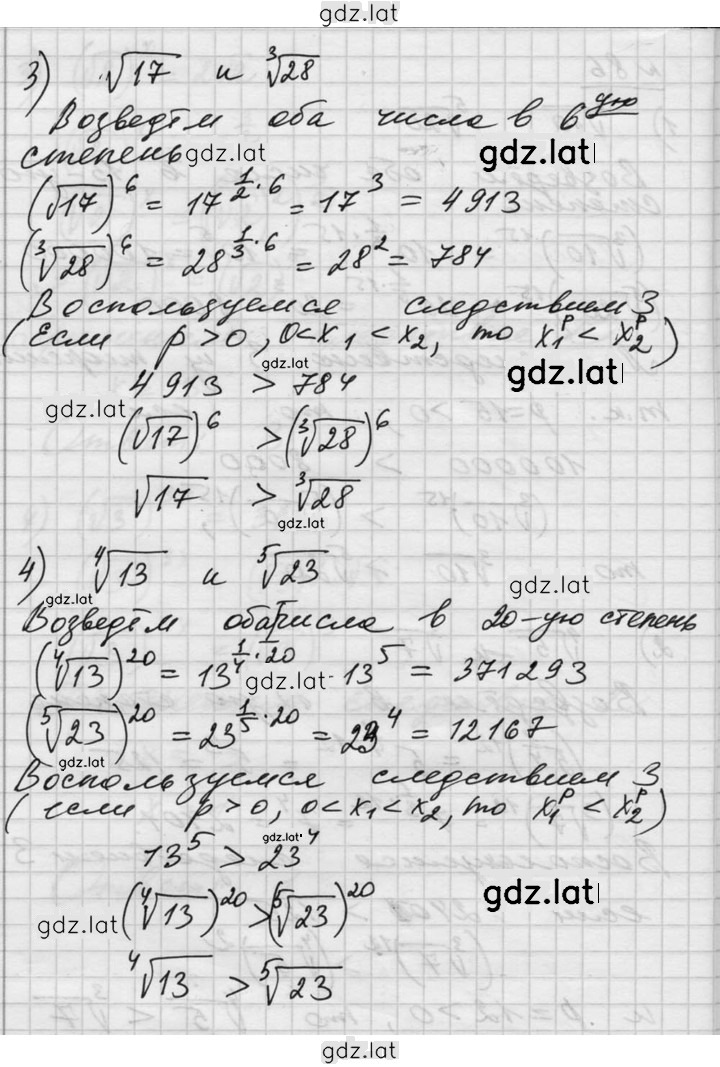 gdz.lat
3) √17 и ∛28
Возведём оба числа в 6ую
степень gdz.lat gdz.lat
(√17)^6 = 17^(1/2·6) = 17^3 = 4913
(∛28)^6 = 28^(1/3·6) = 28^2 = 784
Воспользуемся следствием 3
(Если p>0, 0<x₁<x₂, то x₁^p < x₂^p)
gdz.lat gdz.lat
4913 > 784
gdz.lat
(√17)^6 > (∛28)^6
√17 > ∛28
gdz.lat
4) ∜13 и ⁵√23
gdz.lat gdz.lat
Возведём оба числа в 20-ую степень
(∜13)^20 = 13^(1/4·20) gdz.lat 13^5 = 371293
(⁵√23)^20 = 23^(1/5·20) = 23^4 = 12167
gdz.lat
Воспользуемся следствием 3
(если p>0, 0<x₁<x₂, то x₁^p < x₂^p)
gdz.lat
13^5 > 23^4
gdz.lat (∜13)^20 > (⁵√23)^20 gdz.lat
∜13 > ⁵√23
gdz.lat